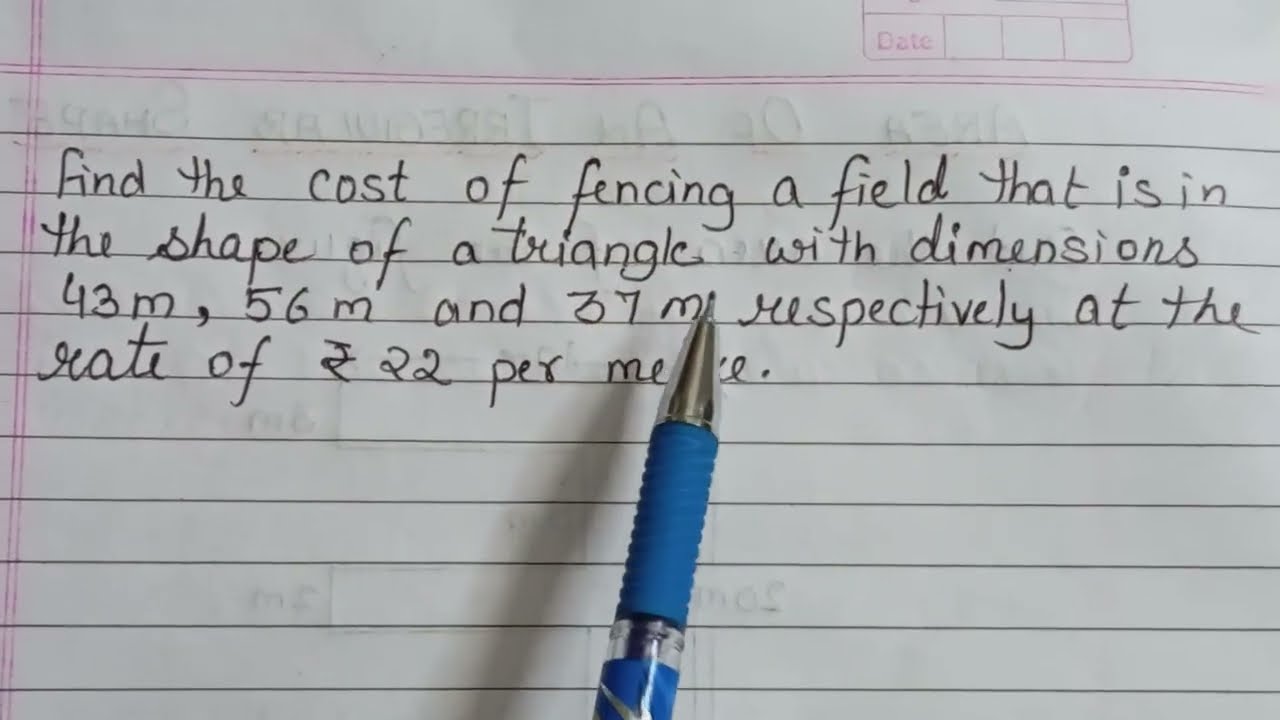 Date
Find the cost of fencing a field that is in
the shape of a triangle with dimensions
43m, 56 m and 37 m respectively at the
rate of ₹ 22 per